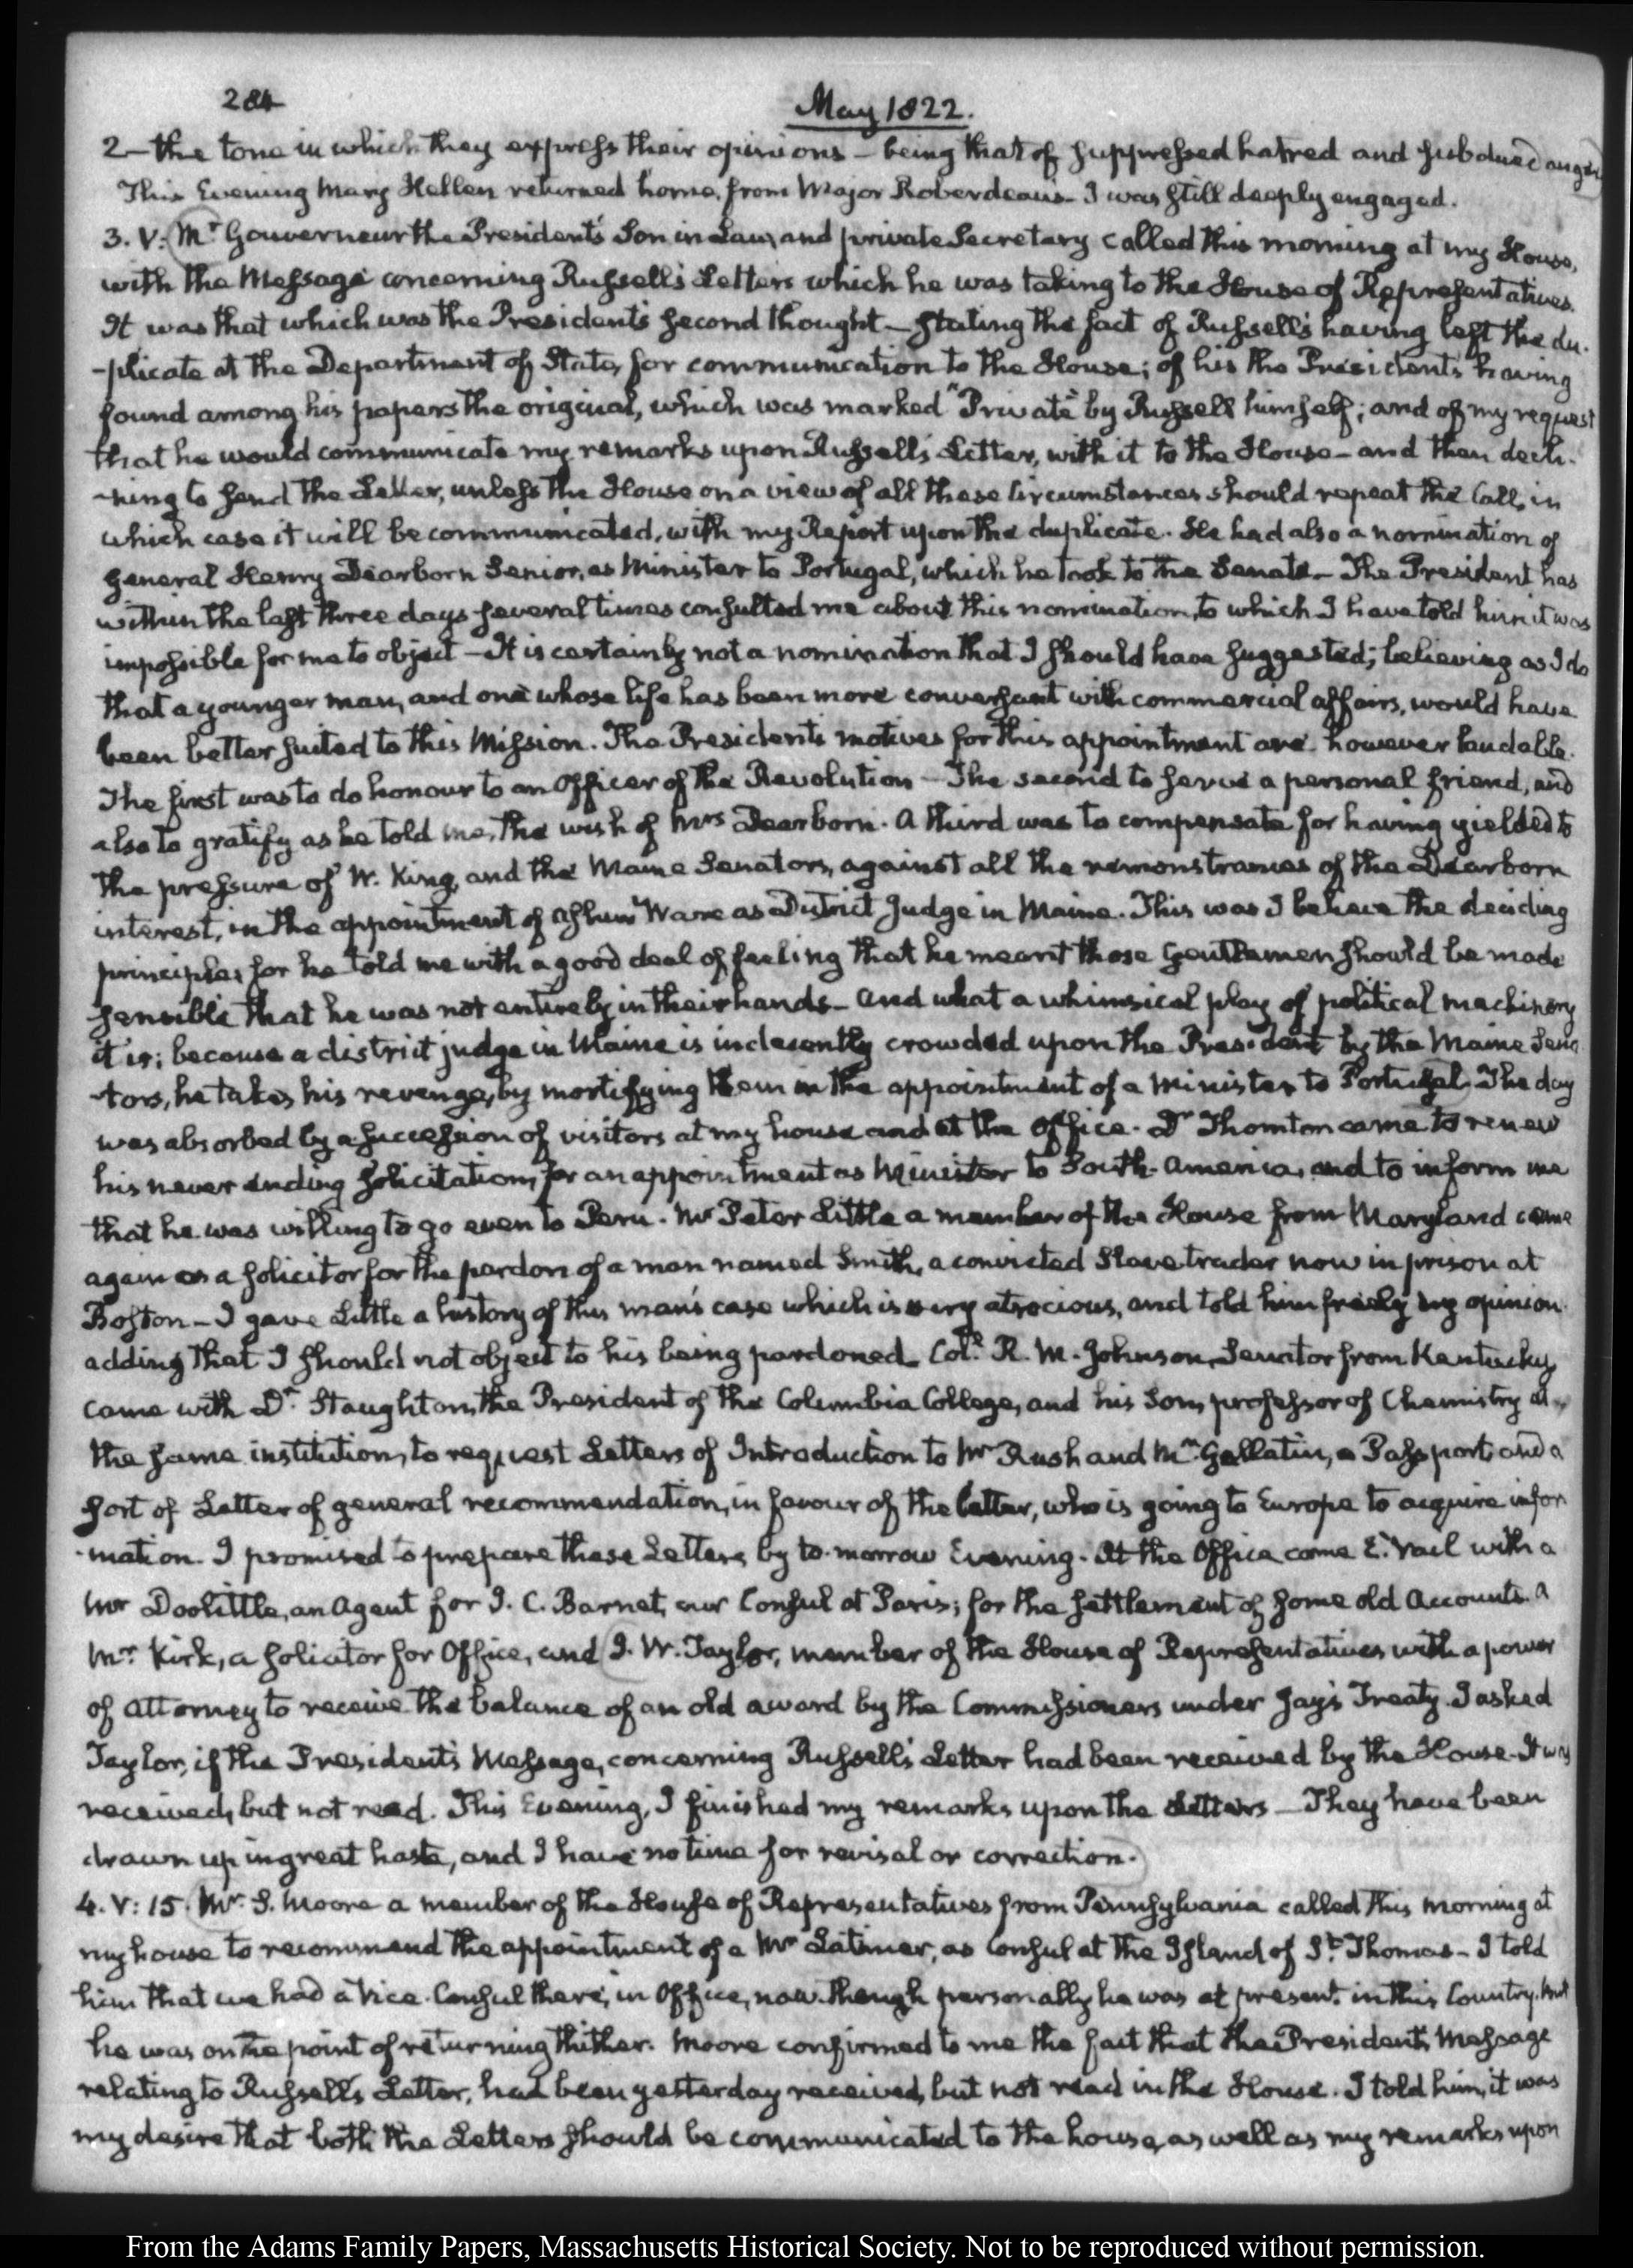 284
May 1822.
2— the tone in which they express their opinions — being that of suppressed hatred and subdued anger
This Evening Mary Hellen returned home, from Major Roberdeau's. I was still deeply engaged.
3. V. Mr Gouverneur the President's Son in Law, and private Secretary called this morning at my House,
with the Message concerning Russell's Letters which he was taking to the House of Representatives.
It was that which was the President's second thought — stating the fact of Russell's having left the du-
-plicate at the Department of State, for communication to the House; of his the President's having
found among his papers the original, which was marked "Private" by Russell himself; and of my request
that he would communicate my remarks upon Russell's Letter, with it to the House — and then decli-
-ning to send the Letter, unless the House on a view of all these circumstances should repeat the Call, in
which case it will be communicated, with my Report upon the duplicate. He had also a nomination of
General Henry Dearborn Senior, as Minister to Portugal, which he took to the Senate — The President has
within the last three days several times consulted me about this nomination, to which I have told him it was
impossible for me to object — It is certainly not a nomination that I should have suggested; believing as I do
that a younger man, and one whose life has been more conversant with commercial affairs, would have
been better suited to this Mission. The President's motives for this appointment are however laudable.
The first was to do honour to an Officer of the Revolution — The second to serve a personal friend, and
also to gratify as he told me, the wish of Mrs Dearborn. A third was to compensate for having yielded to
the pressure of W. King, and the Maine Senators, against all the remonstrances of the Dearborn
interest, in the appointment of Ashur Ware as District Judge in Maine. This was I believe the deciding
principle, for he told me with a good deal of feeling that he meant those Gentlemen should be made
sensible that he was not entirely in their hands — and what a whimsical play of political machinery
it is; because a district judge in Maine is indecently crowded upon the President by the Maine Sena
-tors, he takes his revenge, by mortifying them in the appointment of a Minister to Portugal. The day
was absorbed by a succession of visitors at my house and at the Office. Dr Thornton came to renew
his never ending solicitations, for an appointment as Minister to South-America, and to inform me
that he was willing to go even to Peru. Mr Peter Little a member of the House from Maryland came
again as a solicitor for the pardon of a man named Smith, a convicted Slave trader now in prison at
Boston — I gave Little a history of this man's case which is very atrocious, and told him freely my opinion.
adding that I should not object to his being pardoned. Coll. R. M. Johnson, Senator from Kentucky,
came with Dr. Staughton, the President of the Columbia College, and his Son, professor of Chemistry at
the same institution, to request Letters of Introduction to Mr Rush and Mr Gallatin, a Passport and a
sort of Letter of general recommendation, in favour of the latter, who is going to Europe to acquire infor
-mation. I promised to prepare these Letters, by to-morrow Evening. At the Office came E. Vail with a
Mr Doolittle, an Agent for I. C. Barnet, our Consul at Paris; for the settlement of some old Accounts. A
Mr. Kirk, a solicitor for Office, and J. W. Taylor, member of the House of Representatives with a power
of Attorney to receive the balance of an old award by the Commissioners under Jay's Treaty. I asked
Taylor, if the President's Message, concerning Russell's Letter had been received by the House. It was
received, but not read. This Evening, I finished my remarks upon the Letters — They have been
drawn up in great haste, and I have no time for revisal or correction.
4. V: 15. Mr. S. Moore a member of the House of Representatives from Pennsylvania called this morning at
my house to recommend the appointment of a Mr Latimer, as Consul at the Island of St. Thomas — I told
him that we had a Vice-Consul there, in Office, now though personally he was at present in this Country, but
he was on the point of returning thither. Moore confirmed to me the fact that the President's Message
relating to Russell's Letter, had been yesterday received, but not read in the House. I told him, it was
my desire that both the Letters should be communicated to the house, as well as my remarks upon
From the Adams Family Papers, Massachusetts Historical Society. Not to be reproduced without permission.